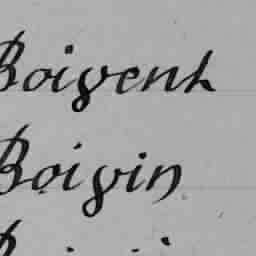 Boivent
Boivin